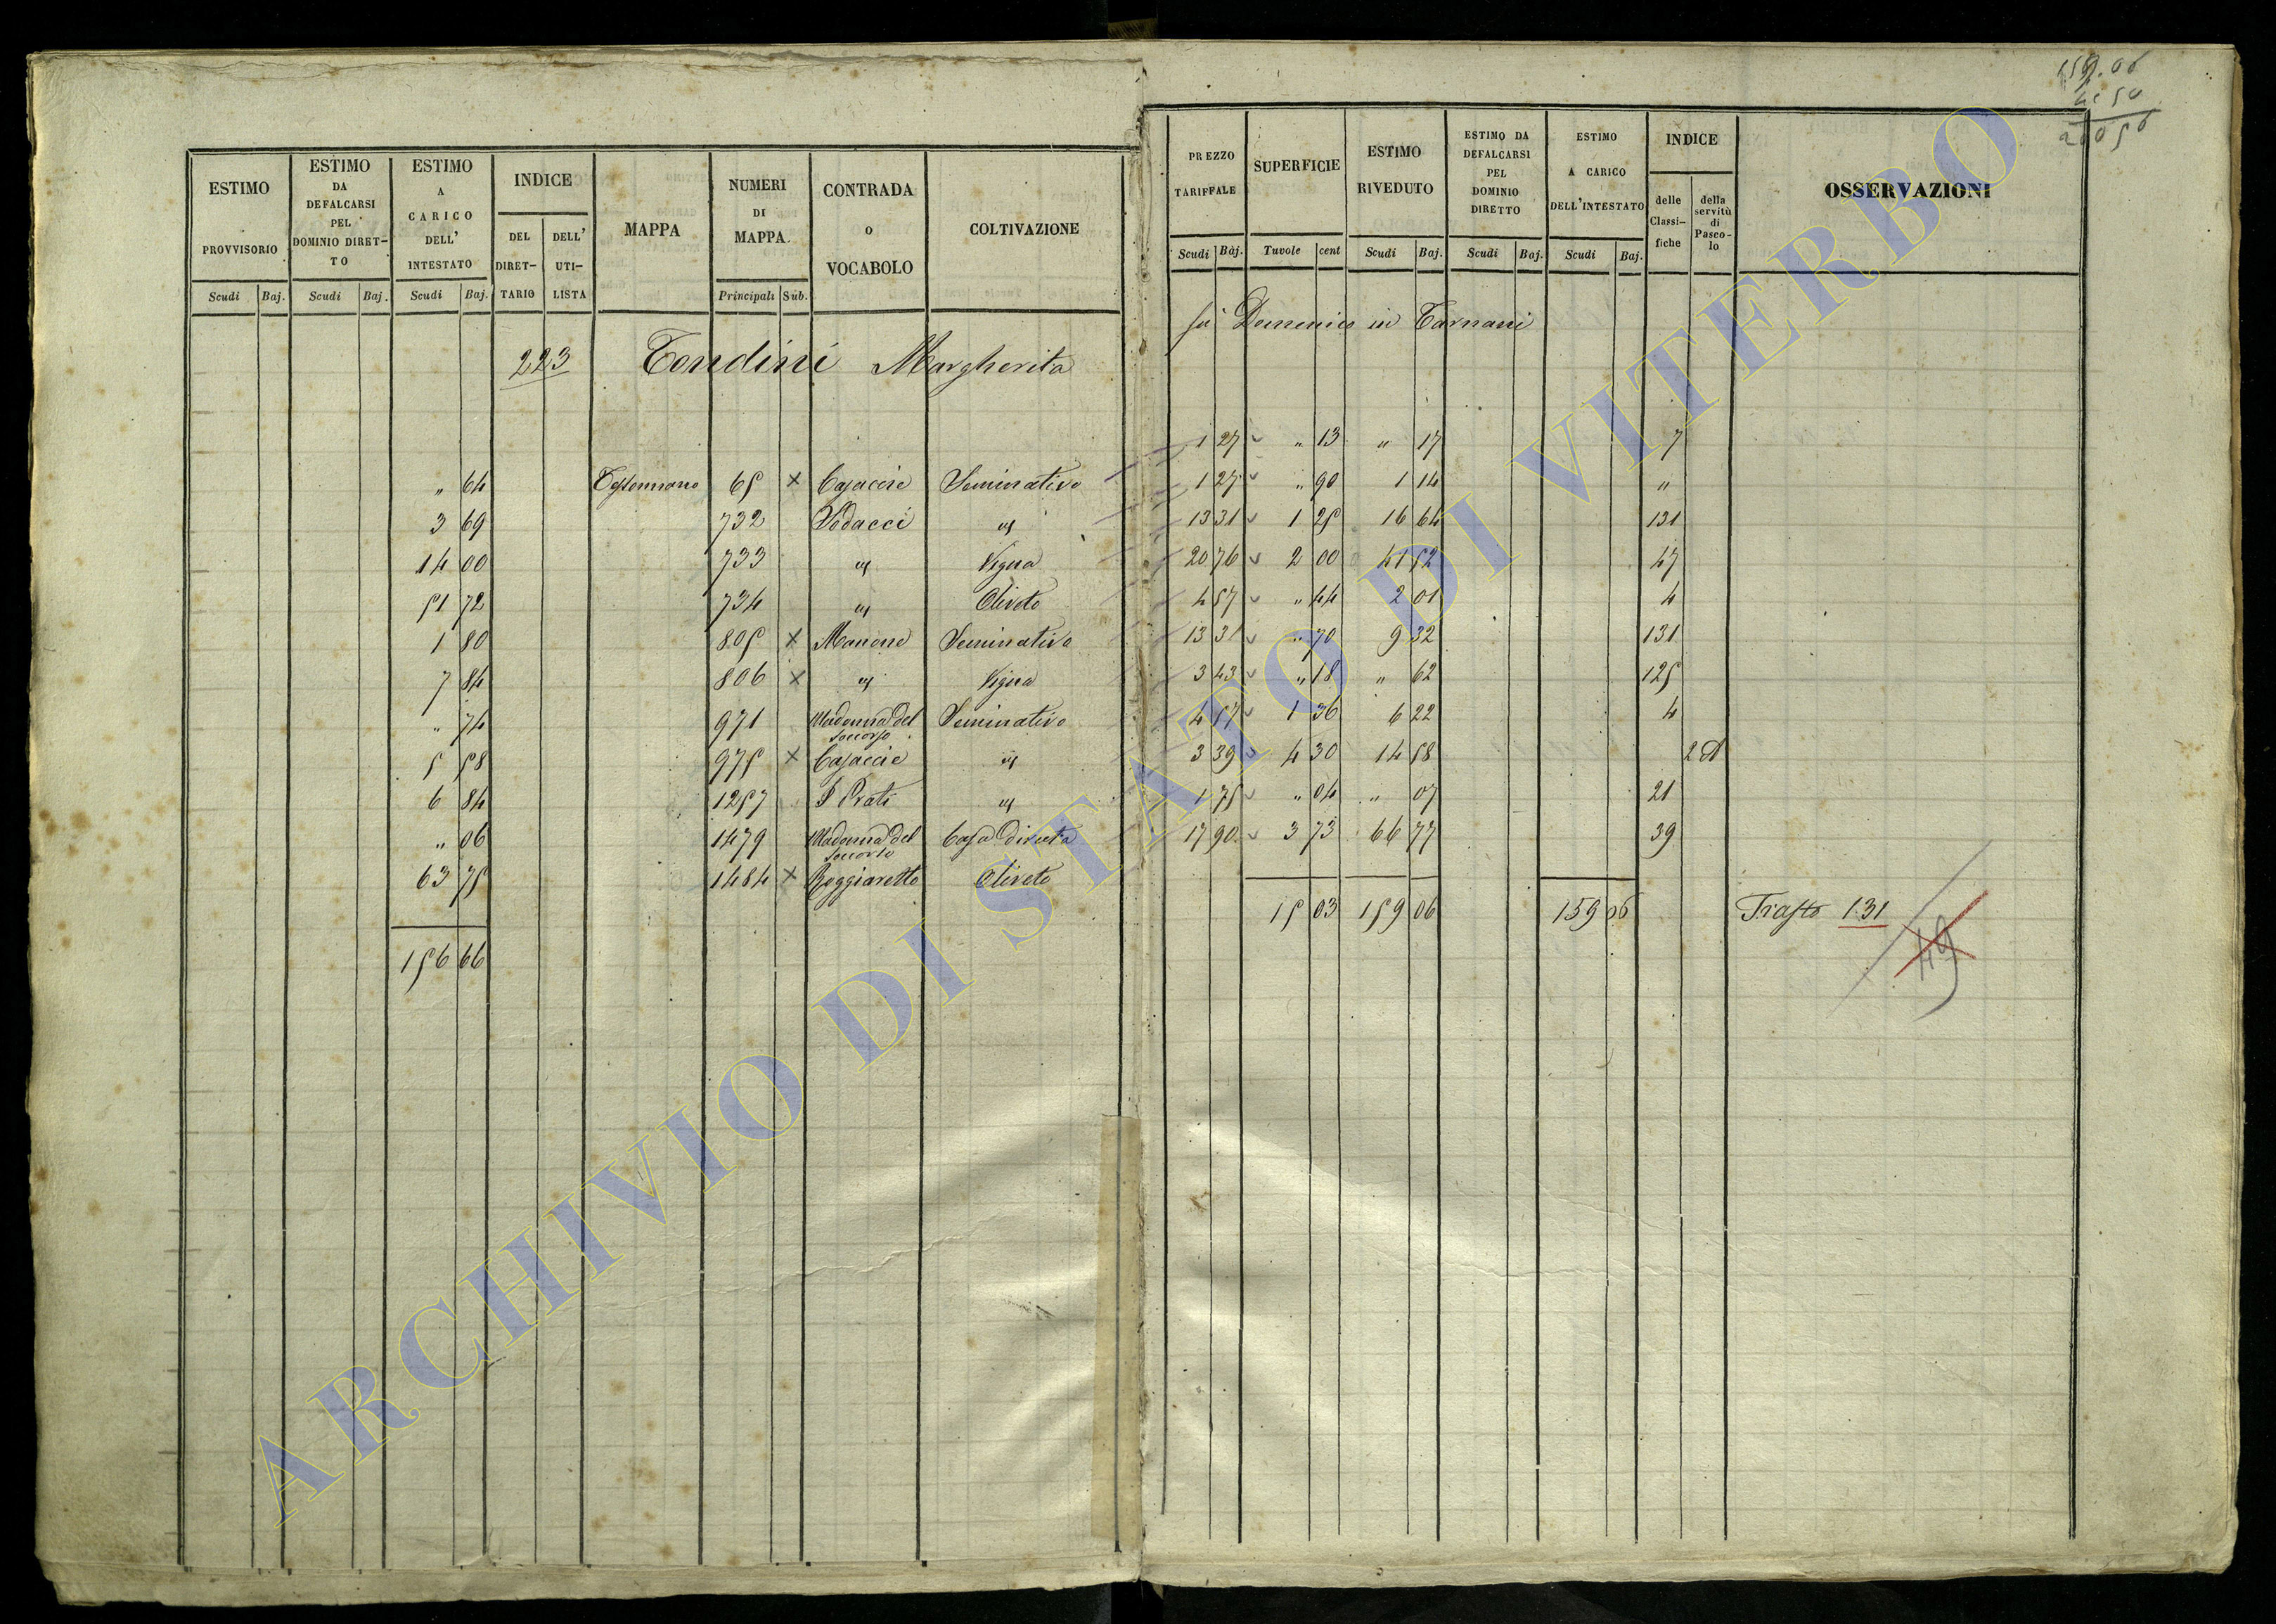 ESTIMO PROVVISORIO | ESTIMO DA DEFALCARSI PEL DOMINIO DIRET-TO | ESTIMO A CARICO DELL' INTESTATO | INDICE DEL DIRET-TARIO | DELL' UTI-LISTA | MAPPA | NUMERI DI MAPPA. | CONTRADA O VOCABOLO | COLTIVAZIONE
Scudi Baj. | Scudi Baj. | Scudi Baj. | Principali Sub.
223 Tondini Margherita
" 64 Tessennano 65 × Casaccie Seminativo
3 69 732 Sodacci "
14 00 733 " Vigna
51 72 734 " Oliveto
1 80 805 × Manone Seminativo
7 84 806 × " Vigna
" 74 971 Madonna del Soccorso Seminativo
5 58 975 × Casaccie "
6 84 1257 I Prati "
" 06 1479 Madonna del Soccorso Casa Diruta
63 75 1484 × Poggiaretto Oliveto
156 66
159.06
41 50
200 56
PREZZO TARIFFALE | SUPERFICIE | ESTIMO RIVEDUTO | ESTIMO DA DEFALCARSI PEL DOMINIO DIRETTO | ESTIMO A CARICO DELL'INTESTATO | INDICE delle Classi-fiche | della servitù di Pasco-lo | OSSERVAZIONI
Scudi Baj. | Tavole cent | Scudi Baj. | Scudi Baj. | Scudi Baj.
fu Domenico in Tarnani
1 27 " 13 " 17 7
1 27 " 90 1 14 "
13 31 1 25 16 64 131
20 76 2 00 41 52 47
4 57 " 44 2 01 4
13 31 " 70 9 32 131
3 43 " 18 " 62 125
4 57 1 36 6 22 4
3 39 4 30 14 58 2 A
1 75 " 04 " 07 21
17 90 3 73 66 77 39
15 03 159 06 159 06 Trasto 131
49
ARCHIVIO DI STATO DI VITERBO